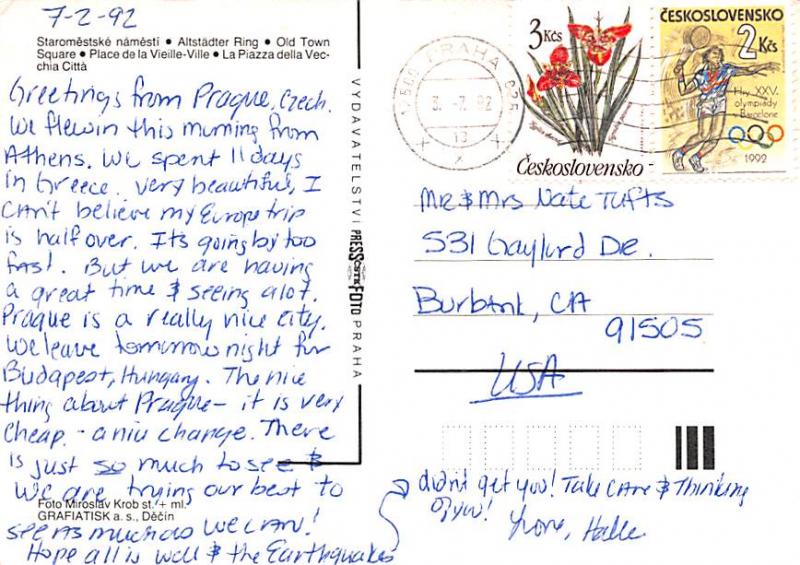 7-2-92
Staroměstské náměstí • Altstädter Ring • Old Town
Square • Place de la Vieille-Ville • La Piazza della Vec-
chia Città
Greetings from Prague, Czech.
We flew in this morning from
Athens. We spent 11 days
in Greece. Very beautiful, I
can't believe my Europe trip
is half over. It's going by too
fast. But we are having
a great time & seeing alot.
Prague is a really nice city.
We leave tommorow night for
Budapest, Hungary. The nice
thing about Prague - it is very
cheap - a nice change. There
is just so much to see &
We are trying our best to
Foto Miroslav Krob st. + ml.
GRAFIATISK a. s., Děčín
see as much as we can!
Hope all is well & the Earthquakes
didn't get you! Take care & Thinking
of you!
Love, Halle
VYDAVATELSTVÍ PRESSFOTO PRAHA
PRAHA 025
3Kčs
Československo
ČESKOSLOVENSKO
2Kčs
Hry XXV.
olympiády
v Barceloně
1992
Mr & Mrs Nate Tufts
531 Gaylord Dr.
Burbank, CA
91505
USA